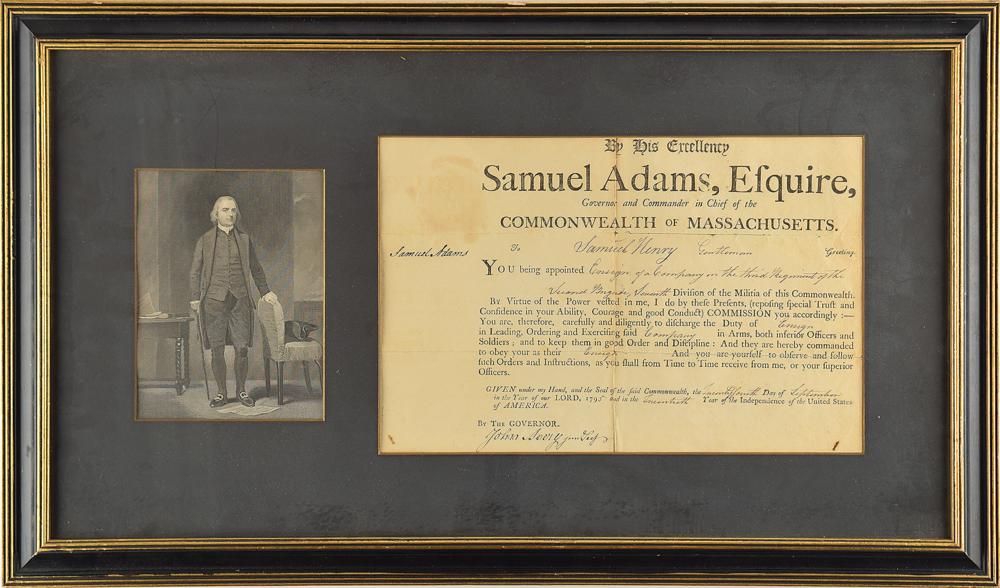 By His Excellency
Samuel Adams, Eſquire,
Governor and Commander in Chief of the
COMMONWEALTH OF MASSACHUSETTS.
Samuel Adams
To Samuel Henry Gentleman Greeting.
YOU being appointed Ensign of a Company in the third Regiment of the
Second Brigade, Seventh Division of the Militia of this Commonwealth.
By Virtue of the Power veſted in me, I do by theſe Preſents, (repoſing ſpecial Truſt and
Confidence in your Ability, Courage and good Conduct) COMMISSION you accordingly :—
You are, therefore, carefully and diligently to diſcharge the Duty of Ensign
in Leading, Ordering and Exerciſing ſaid Company in Arms, both inferior Officers and
Soldiers ; and to keep them in good Order and Diſcipline : And they are hereby commanded
to obey you as their Ensign And you are yourſelf to obſerve and follow
ſuch Orders and Inſtructions, as you ſhall from Time to Time receive from me, or your ſuperior
Officers.
GIVEN under my Hand, and the Seal of the ſaid Commonwealth, the Day of September
in the Year of our LORD, 1795 and in the Twentieth Year of the Independence of the United States
of AMERICA.
BY THE GOVERNOR.
John Avery jun Secy